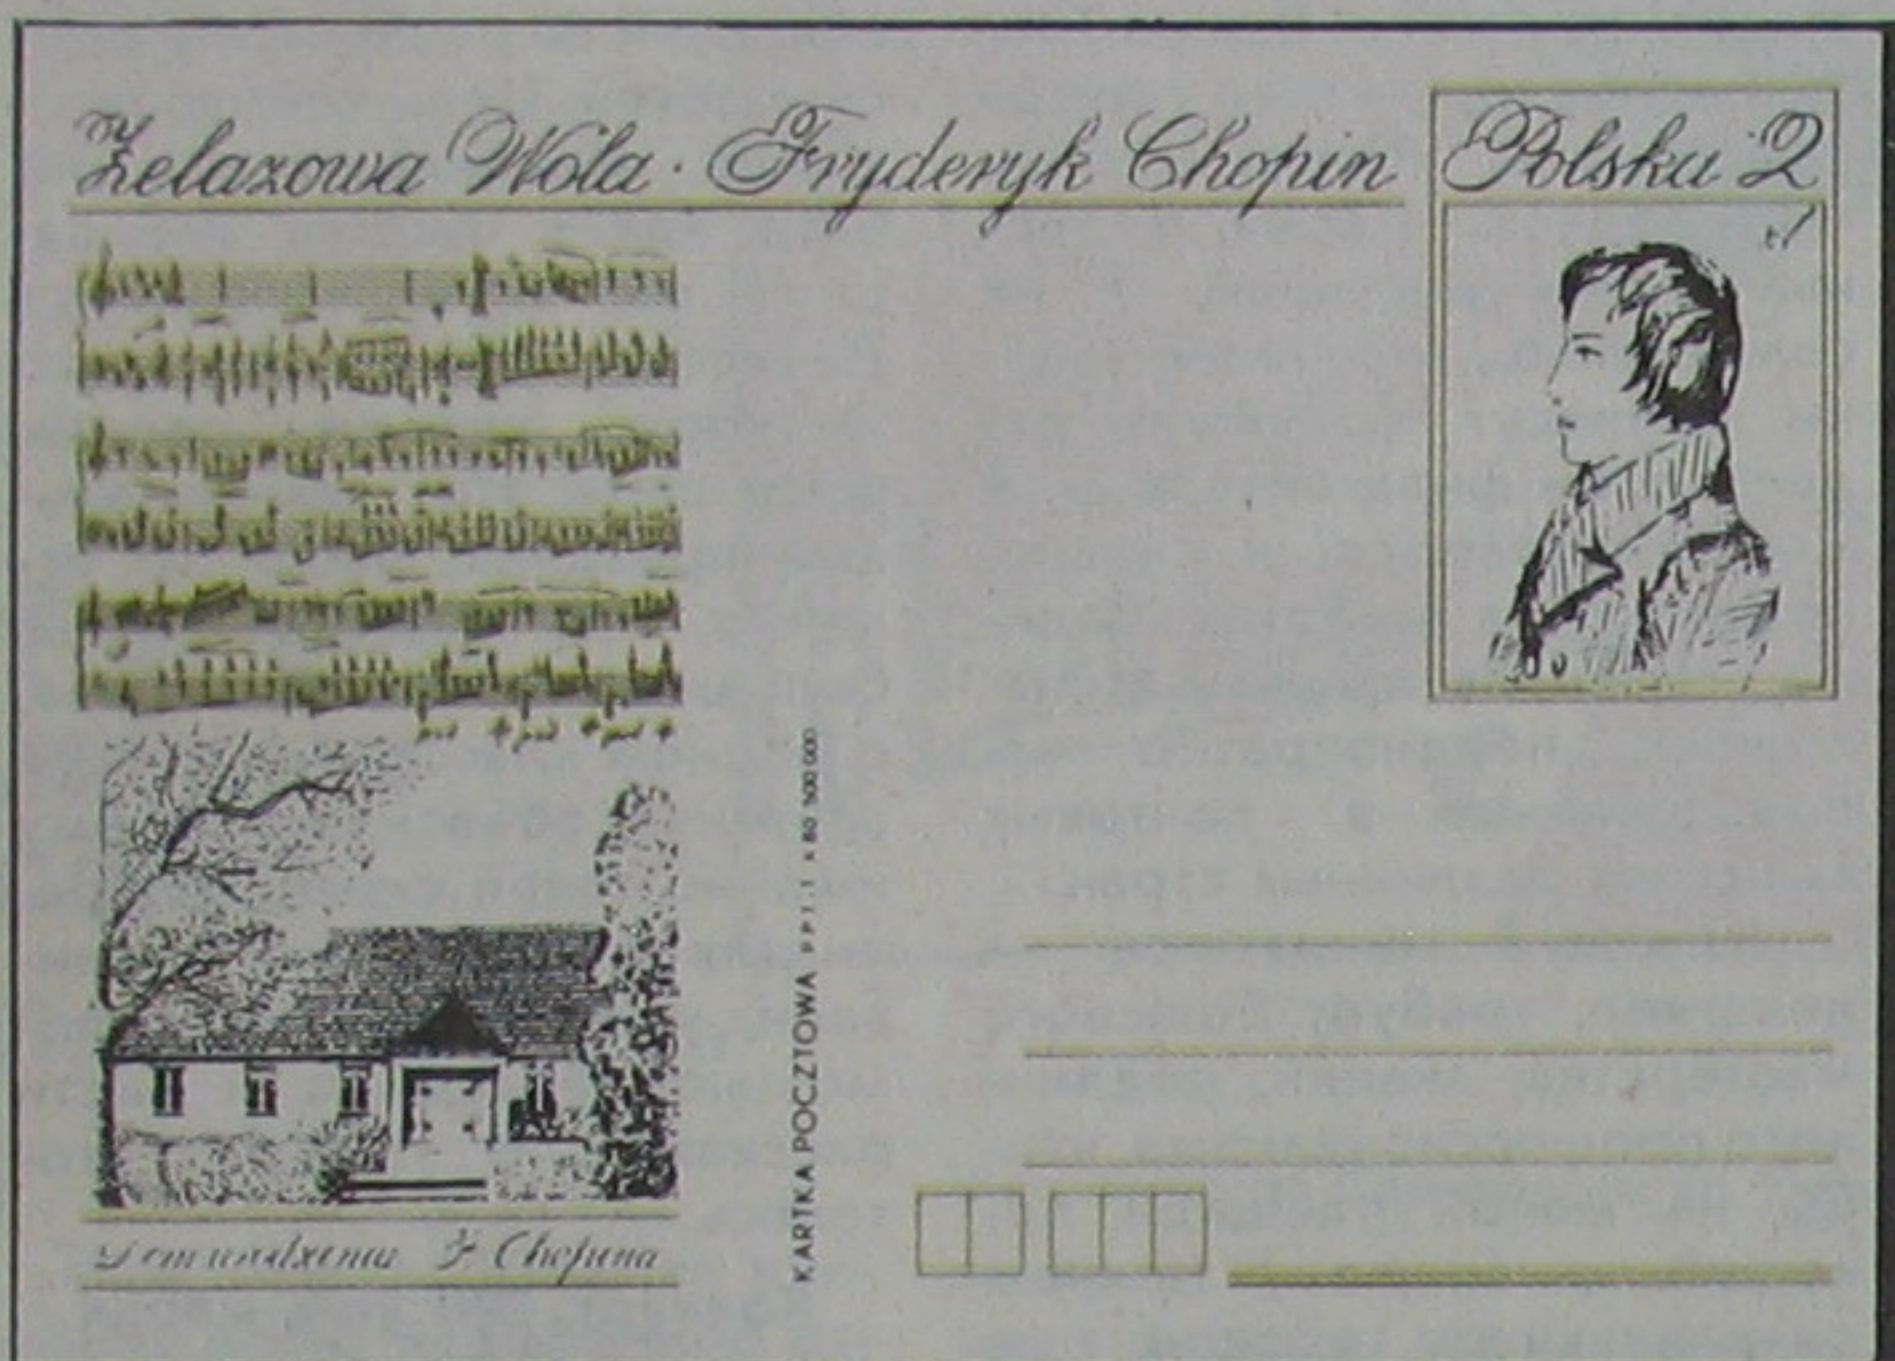 Żelazowa Wola · Fryderyk Chopin
Polska 2
zł
KARTKA POCZTOWA PPTiT X 80 500 000
Dom urodzenia F Chopina